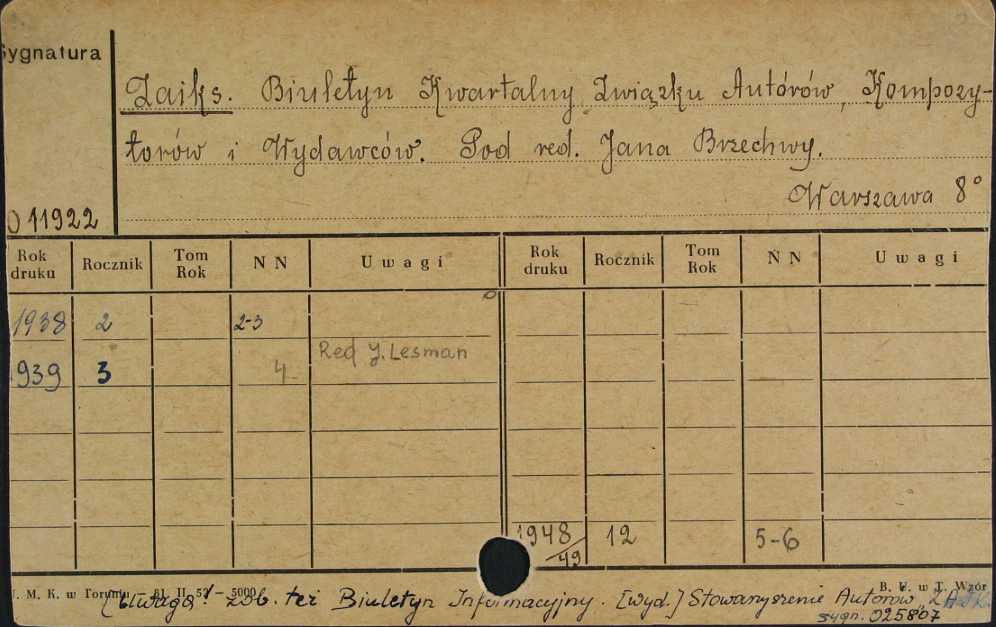 Sygnatura
Zaiks. Biuletyn Kwartalny Związku Autórów, Kompozy-
torów i Wydawców. Pod red. Jana Brzechwy.
Warszawa 8°
O 11922
Rok druku Rocznik Tom Rok N N Uwagi Rok druku Rocznik Tom Rok N N Uwagi
1938 2 2-3
1939 3 4 Red J. Lesman
1948/49 12 5-6
U. M. K. w Toruniu – 21. II. 52 – 5000 B. U. w T. Wzór
[Uwaga! Zob. też Biuletyn Informacyjny. [wyd.] Stowarzyszenie Autorów "ZAIKS"
sygn. 025807